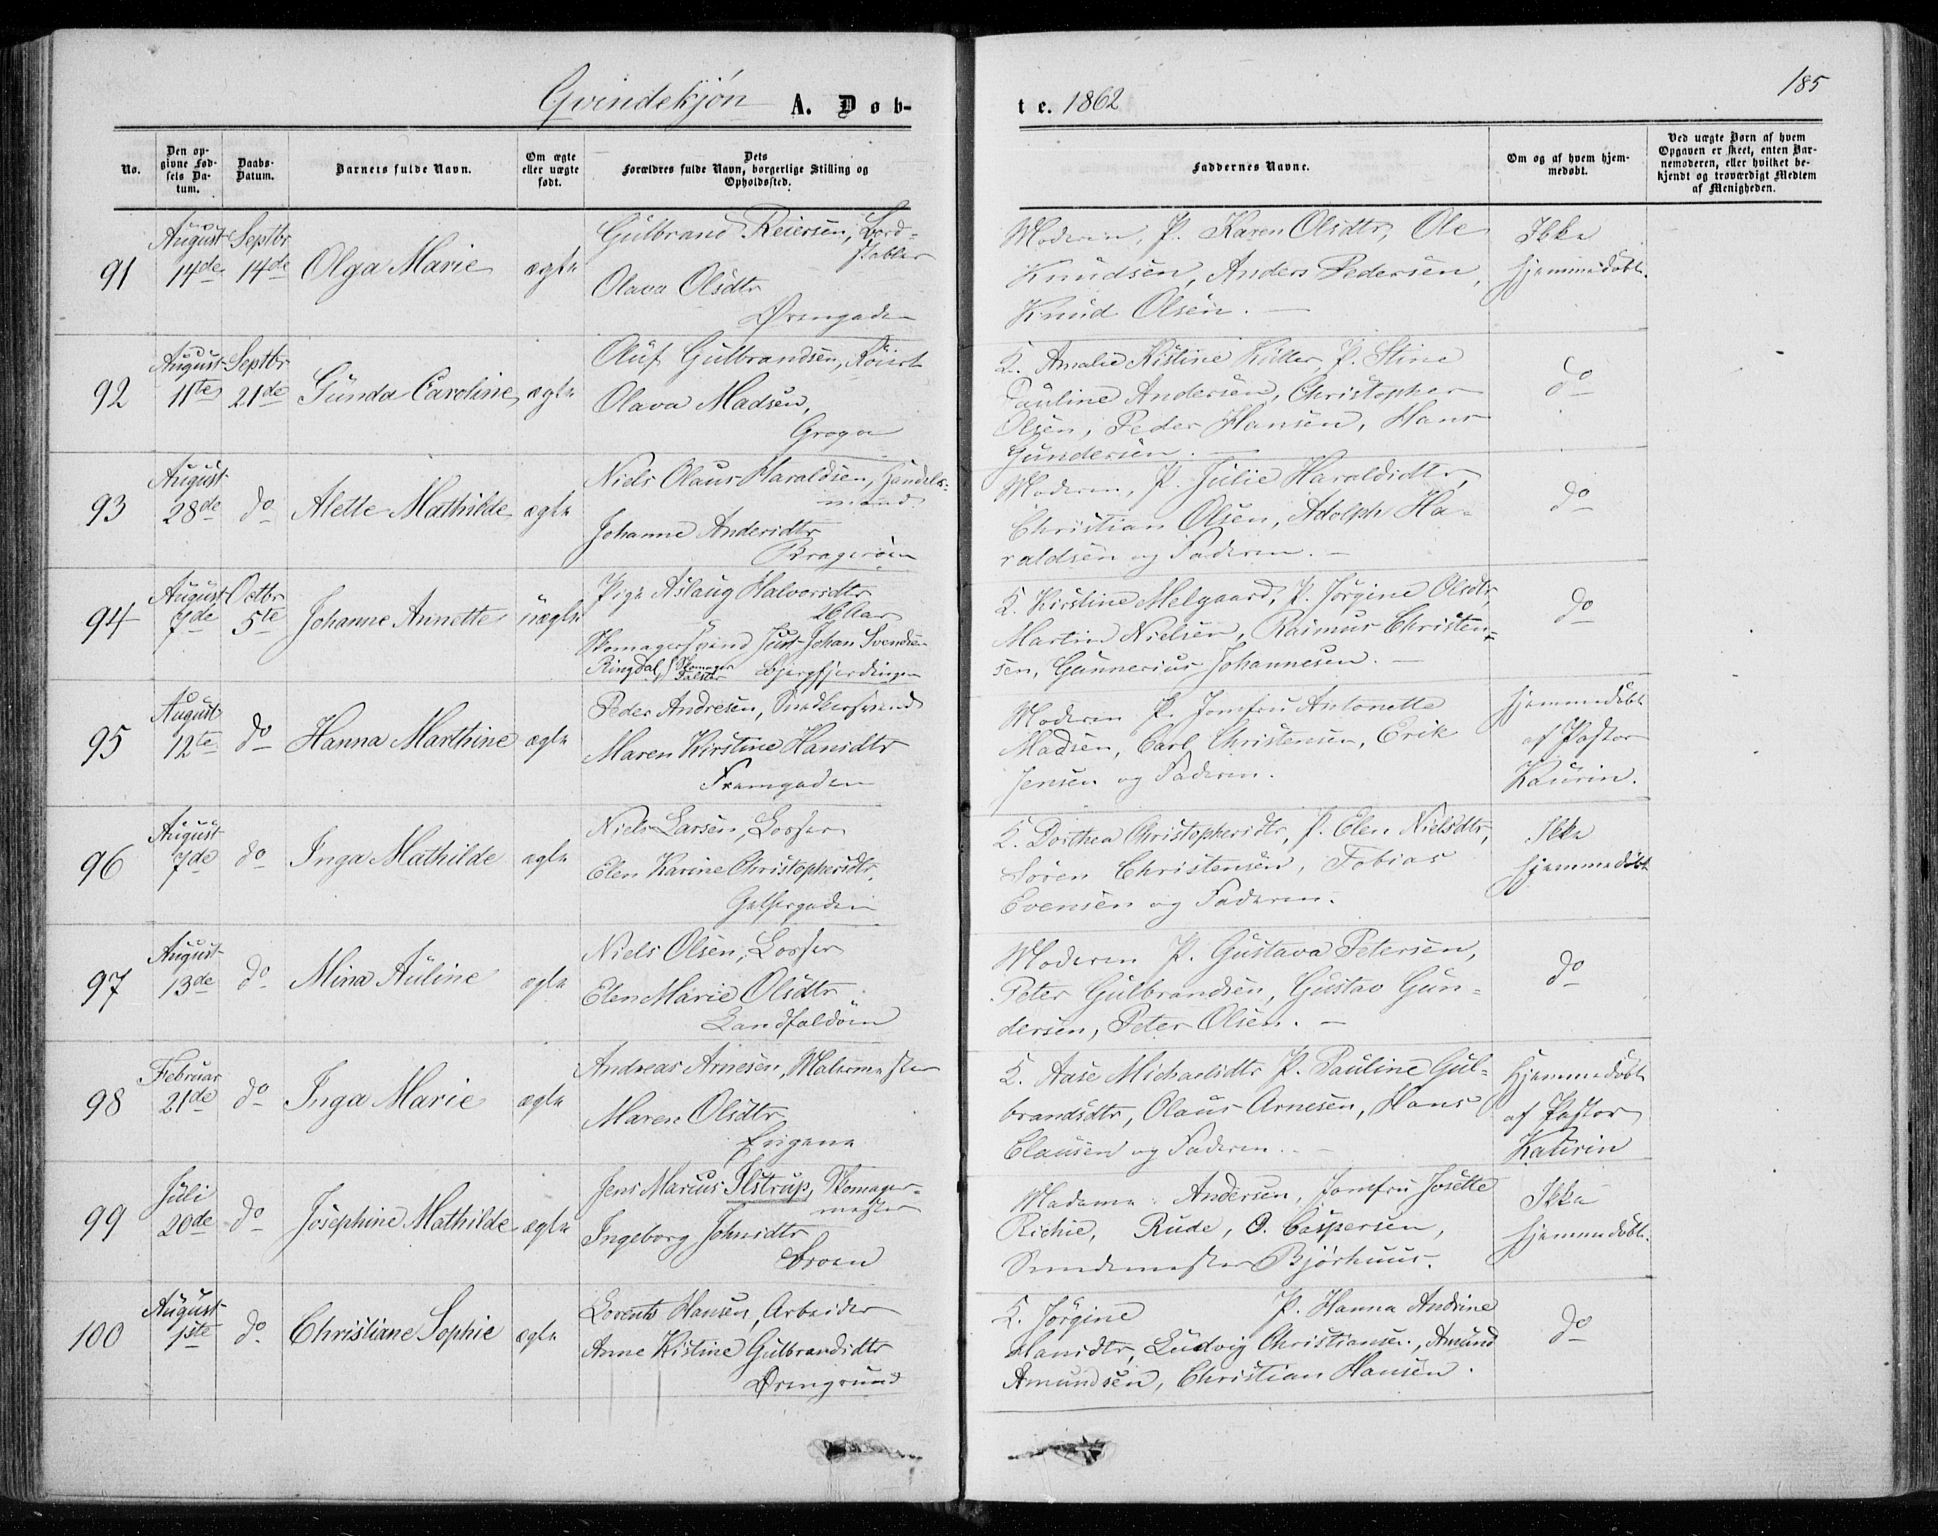 Qvindekjøn A. Døb-
te. 1862
185
No.
Den op-
givne Fød-
sels Da-
tum.
Daabs-
Datum.
Barnets fulde Navn.
Om ægte
eller uægte
født.
Dets
Forældres fulde Navn, borgerlige Stilling og
Opholdssted.
Faddernes Navne.
Om og af hvem hjem-
medøbt.
Ved uægte Børn af hvem
Opgaven er skeet, enten Bar-
nemoderen, eller hvilket be-
kjendt og troværdigt Medlem
af Menigheden.
91
August
14de
Septbr
14de
Olga Marie
ægte
Gulbrand Reiersen, Bord-
stabler
Olava Olsdtr
Ørengaden
Moderen, P. Karen Olsdtr, Ole
Knudsen, Anders Pedersen,
Knud Olsen.
Ikke
hjemmedøbt.
92
August
11te
Septbr
21de
Gunda Caroline
ægte
Oluf Gulbrandsen,
Olava Madsen,
K. Amalie Kistine P. Stine
Pauline Andersen, Christopher
Olsen, Peder Hansen, Hans
Gundersen.
do
93
August
28de
do
Alette Mathilde
ægte
Niels Olaus Haraldsen, Handels-
mand
Johanne Andersdtr
Bragerøen
Moderen, P. Julie Haraldsdtr,
Christian Olsen, Adolph Ha-
raldsen og Faderen.
do
94
August
7de
Octbr
5te
Johanne Annette
uægte
Pige Aslaug Halvorsdtr
26 Aar
Skomagersvend Just Johan Svendsen
Ringdal, Skomager
Falster Bjergfjerdingen
K. Kirstine Melgaard, P. Jørgine Olsdtr,
Martin Nielsen, Rasmus Christen-
sen, Gunnerius Johannesen.
do
95
August
12te
do
Hanna Marthine
ægte
Peder Andresen, Snedkersvend
Maren Kirstine Hansdtr
Tverrgaden
Moderen P. Jomfru Antonette
Madsen, Carl Christensen, Erik
Jensen og Faderen.
hjemmedøbt
af Pastor
Kaurin.
96
August
7de
do
Inga Mathilde
ægte
Niels Larsen, Losser
Elen Karine Christophersdtr.
K. Dorthea Christophersdtr, P. Elen Nielsdtr,
Søren Christensen, Tobias
Evensen og Faderen.
Ikke
hjemmedøbt
97
August
13de
do
Mina Auline
ægte
Niels Olsen, Losser
Elen Marie Olsdtr
Landfaldøen
Moderen P. Gustava Petersen,
Peter Gulbrandsen, Gustav Gun-
dersen, Peter Olsen.
do
98
Februar
21de
do
Inga Marie
ægte
Andreas Arnesen, Malermester
Maren Olsdtr
Engene
K. Aase Michaelsdtr P. Pauline Gul-
brandsdtr, Olaus Arnesen, Hans
Clausen og Faderen.
Hjemmedøbt
af Pastor
Kaurin
99
Juli
20de
do
Josephine Mathilde
ægte
Jens Marius Ilstrup, Skomager-
mester
Ingeborg Johnsdtr
Broen
Madame Andersen, Jomfru Josette
Richie, Rude, O. Caspersen,
Smedemester Bjørhuus.
Ikke
hjemmedøbt.
100
August
1ste
do
Christiane Sophie
ægte
Lorents Hansen, Arbeider
Anne Kistine Gulbrandsdtr
Ørengrund
K. Jørgine P. Hanna Andrine
Hansdtr, Ludvig Christiansen, Amund
Amundsen, Christian Hansen.
do